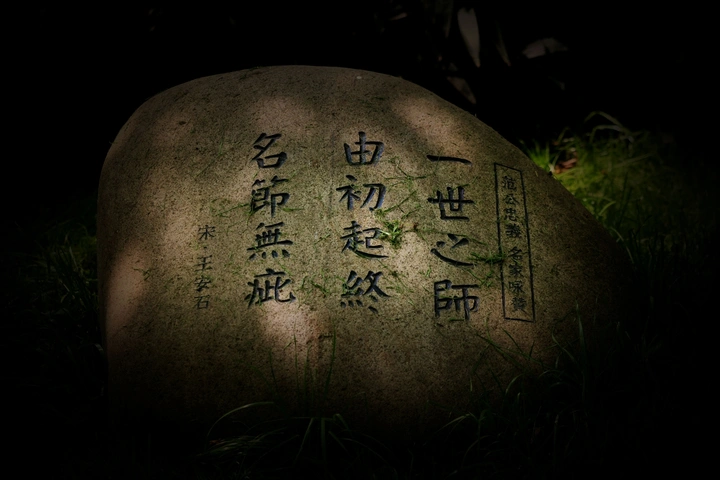 范公忠義名家咏義
一世之師
由初起終
名節無疵
宋 王安石